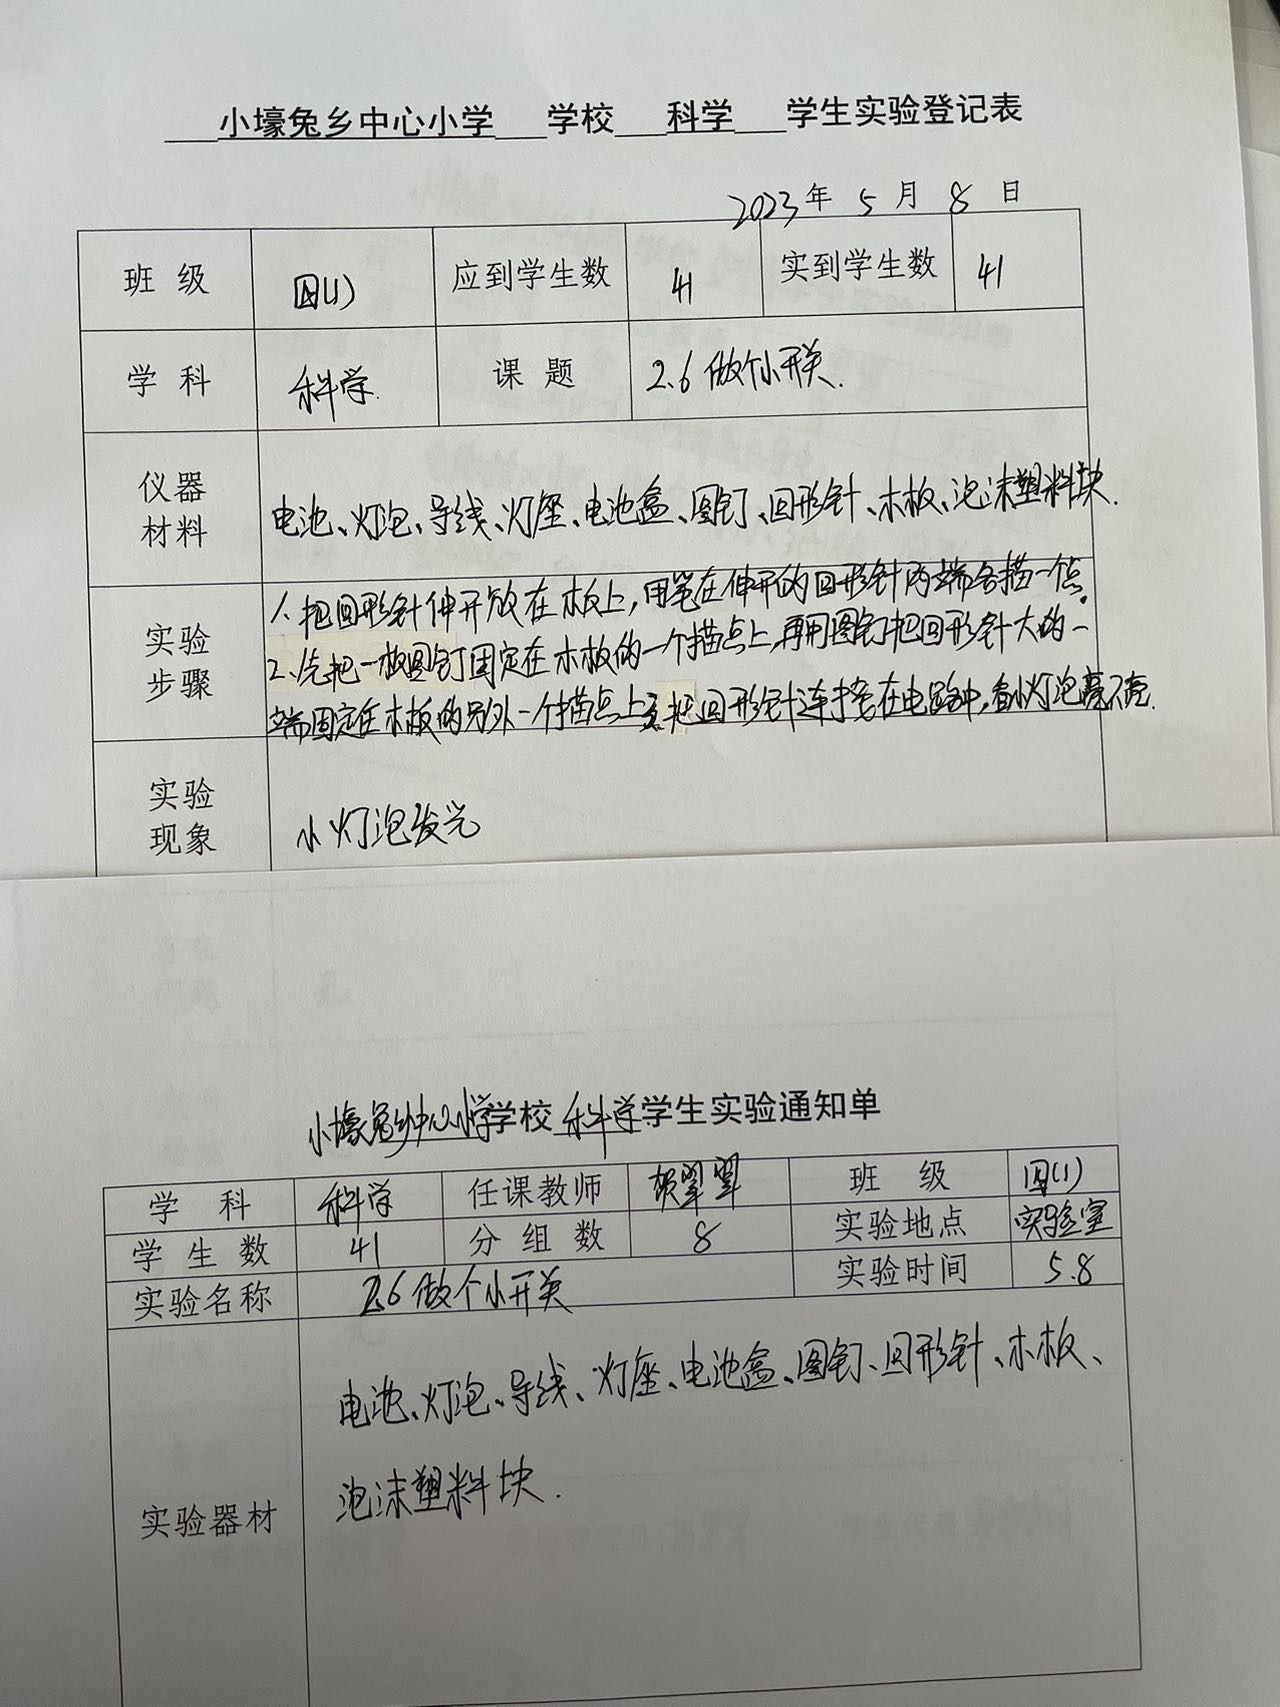 小壕兔乡中心小学 学校 科学 学生实验登记表
2023年 5 月 8 日
班 级 四(1) 应到学生数 41 实到学生数 41
学 科 科学. 课 题 2.6 做个小开关.
仪器
材料
电池、灯泡、导线、灯座、电池盒、图钉、回形针、木板、泡沫塑料块.
实验
步骤
1. 把回形针伸开放在木板上,用笔在伸开的回形针两端各描一个点.
2、先把一枚图钉固定在木板的一个描点上,再用图钉把回形针大的一
端固定在木板的另外一个描点上 3.把回形针连接在电路中,看小灯泡亮不亮.
实验
现象
小灯泡发光
小壕兔乡中心小学学校 科学学生实验通知单
学 科 科学 任课教师 班 级 四(1)
学 生 数 41 分 组 数 8 实验地点 实验室
实验名称 2.6 做个小开关 实验时间 5.8
实验器材
电池、灯泡、导线、灯座、电池盒、图钉、回形针、木板、
泡沫塑料块.